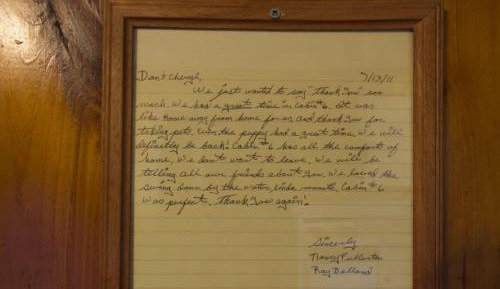 Don & Cheryl, 7/13/11
We just wanted to say "thank you" so
much. We had a great time in Cabin #6. It was
like home away from home for us and thank you for
taking pets. Even the puppy had a great time. We will
definitely be back! Cabin #6 has all the comforts of
home. We don't want to leave. We will be
telling all our friends about you. We loved the
swing down by the water, Cabin #6
was perfect. Thank you again!
Sincerly
Nancy Fullerton
Ray